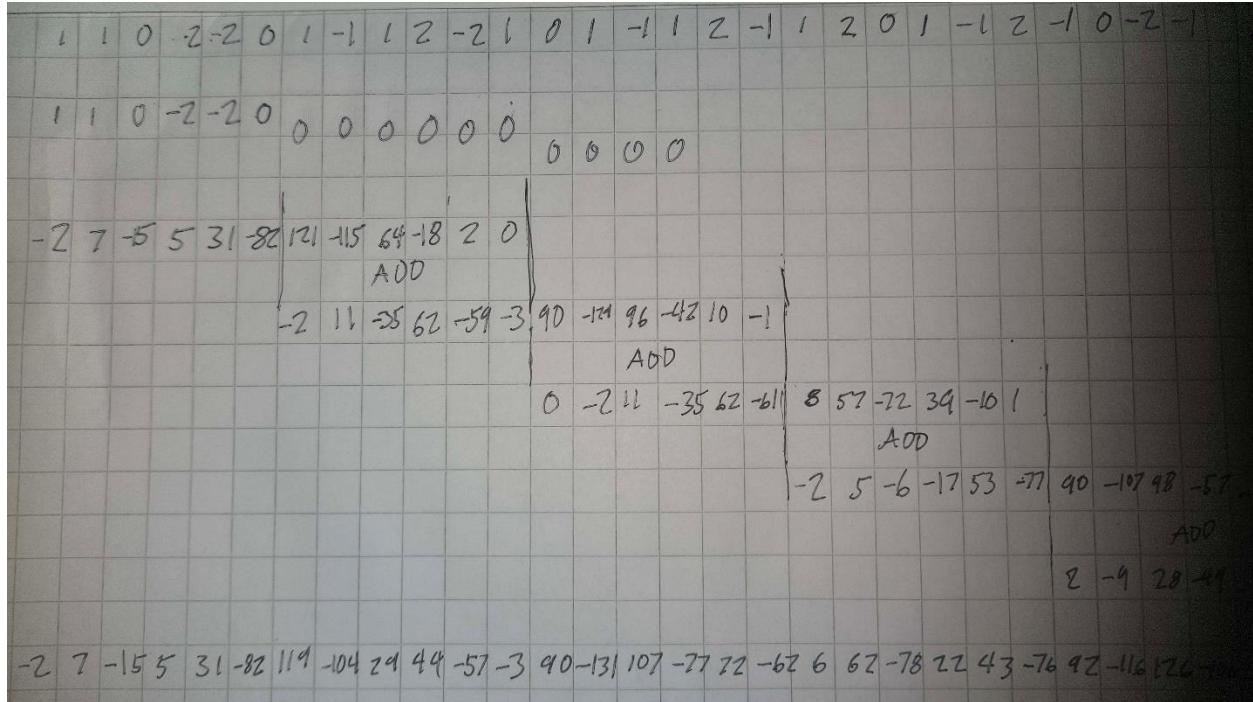 1 1 0 -2 -2 0 1 -1 1 2 -2 1 0 1 -1 1 2 -1 1 2 0 1 -1 2 -1 0 -2 -1
1 1 0 -2 -2 0 0 0 0 0 0 0
0 0 0 0
-2 7 -15 5 31 -82 121 -115 64 -18 2 0
ADD
-2 11 -35 62 -59 -3 90 -129 96 -42 10 -1
ADD
0 -2 11 -35 62 -61 8 57 -72 39 -10 1
ADD
-2 5 -6 -17 53 -77 90 -107 98 -57
ADD
2 -9 28 -49
-2 7 -15 5 31 -82 119 -104 29 44 -57 -3 90 -131 107 -77 72 -62 6 62 -78 22 43 -76 92 -116 126